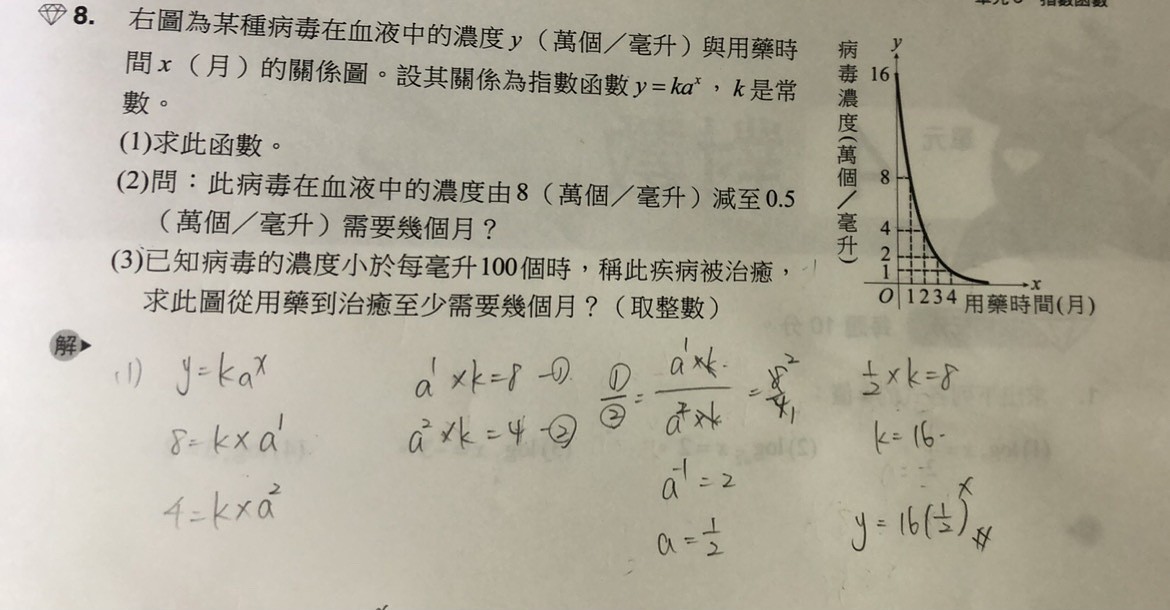 8. 右圖為某種病毒在血液中的濃度 y（萬個／毫升）與用藥時
間 x（月）的關係圖。設其關係為指數函數 y = kaˣ，k 是常
數。
(1)求此函數。
(2)問：此病毒在血液中的濃度由 8（萬個／毫升）減至 0.5
（萬個／毫升）需要幾個月？
(3)已知病毒的濃度小於每毫升 100 個時，稱此疾病被治癒，
求此圖從用藥到治癒至少需要幾個月？（取整數）
病毒濃度（萬個／毫升）
y
16
8
4
2
1
O 1 2 3 4 x
用藥時間(月)
解▶
(1) y=kaˣ
8=k×a¹
4=k×a²
a¹×k=8 -①
a²×k=4 -②
①/② = a¹×k/a²×k = 8/4
a⁻¹=2
a=1/2
1/2×k=8
k=16
y=16(1/2)ˣ #